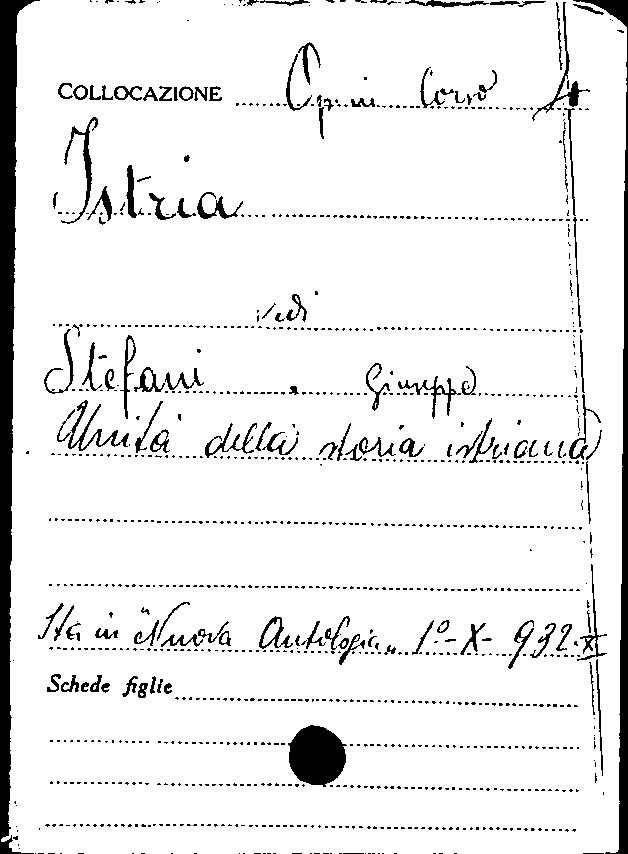 COLLOCAZIONE Corso
Istria
vedi
Stefani . Giuseppe
Unità della storia istriana
Sta in "Nuova Antologia„ 1º-X-932.X
Schede figlie